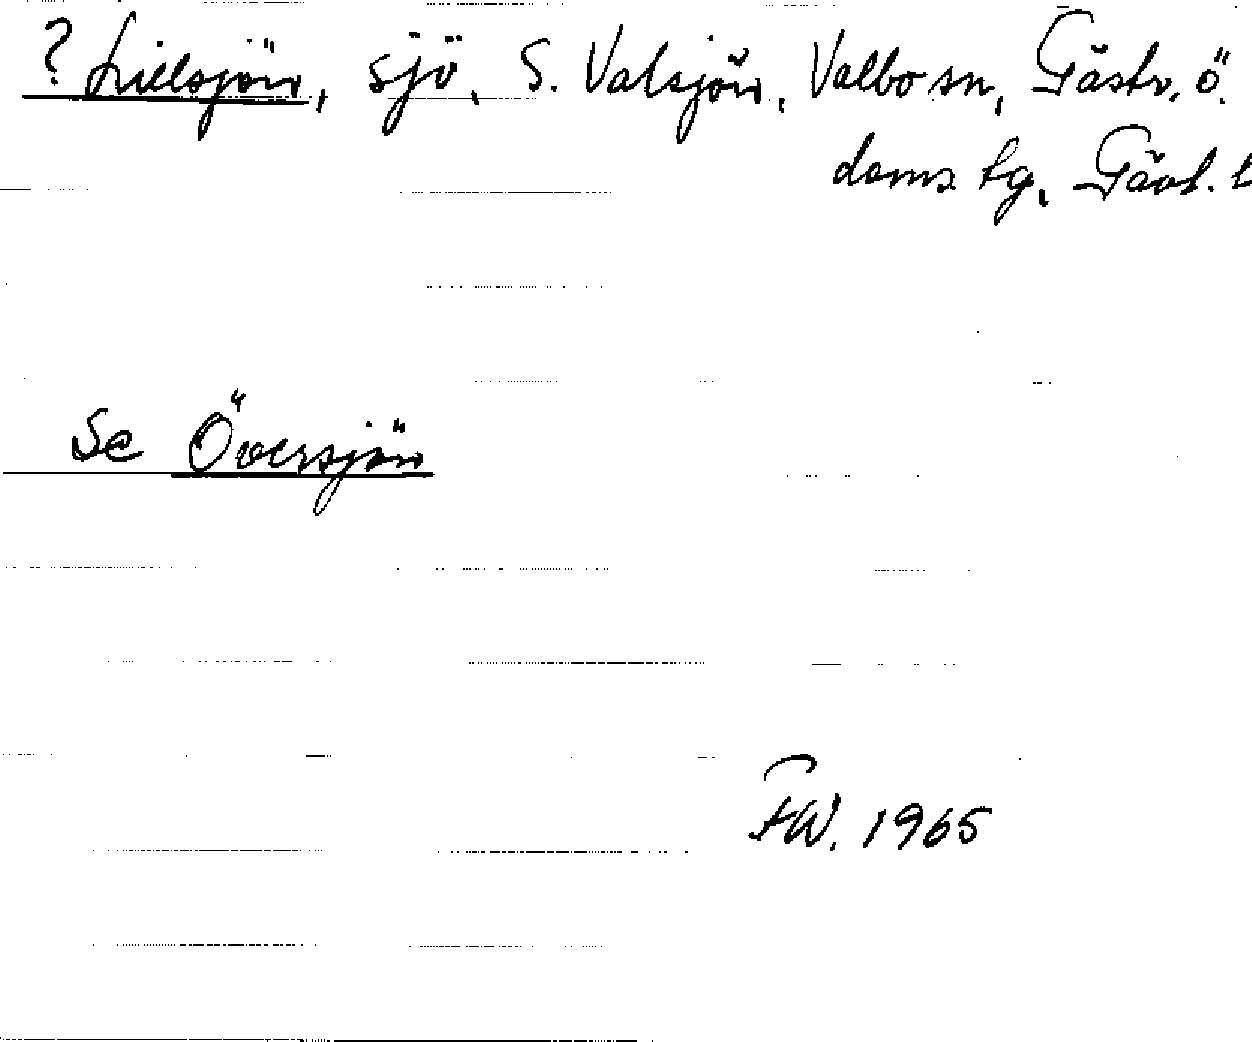 ? Lillsjön, sjö, S. Valsjön, Valbo sn, Gästr. ö.
doms. lg, Gävl. l
Se Översjön
FW. 1965